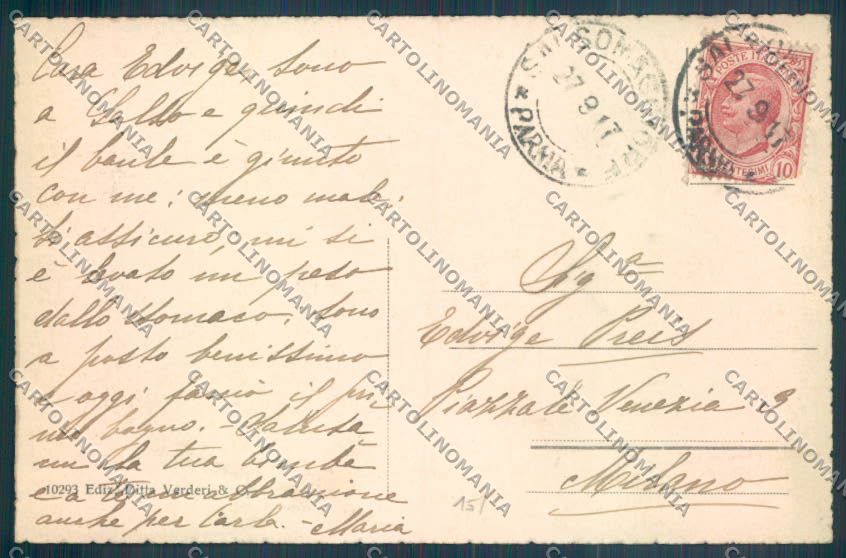 Cara Edvige, sono
a Salso e quindi
il baule è giunto
con me; meno male.
Ti assicuro, mi si
è levato un peso
dallo stomaco. Sono
a posto benissimo
e oggi faccio il pri
mo bagno. - Saluta
mi la tua bimba
e a te un abbraccione
anche per Carla. - Maria
10293 Ediz. Ditta Verderi & C.
SALSOMAGGIORE
27 9 17
* PARMA *
POSTE ITALIANE
CENTESIMI 10
Sig.ra
Edvige Preis
Piazzale Venezia 3
Milano
15/
CARTOLINOMANIA